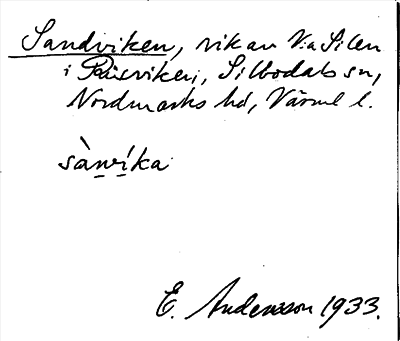 Sandviken, vik av V:a Silen
i Råsviken, Silbodals sn,
Nordmarks hd, Värml. l.
sànvíka
E. Andersson 1933.